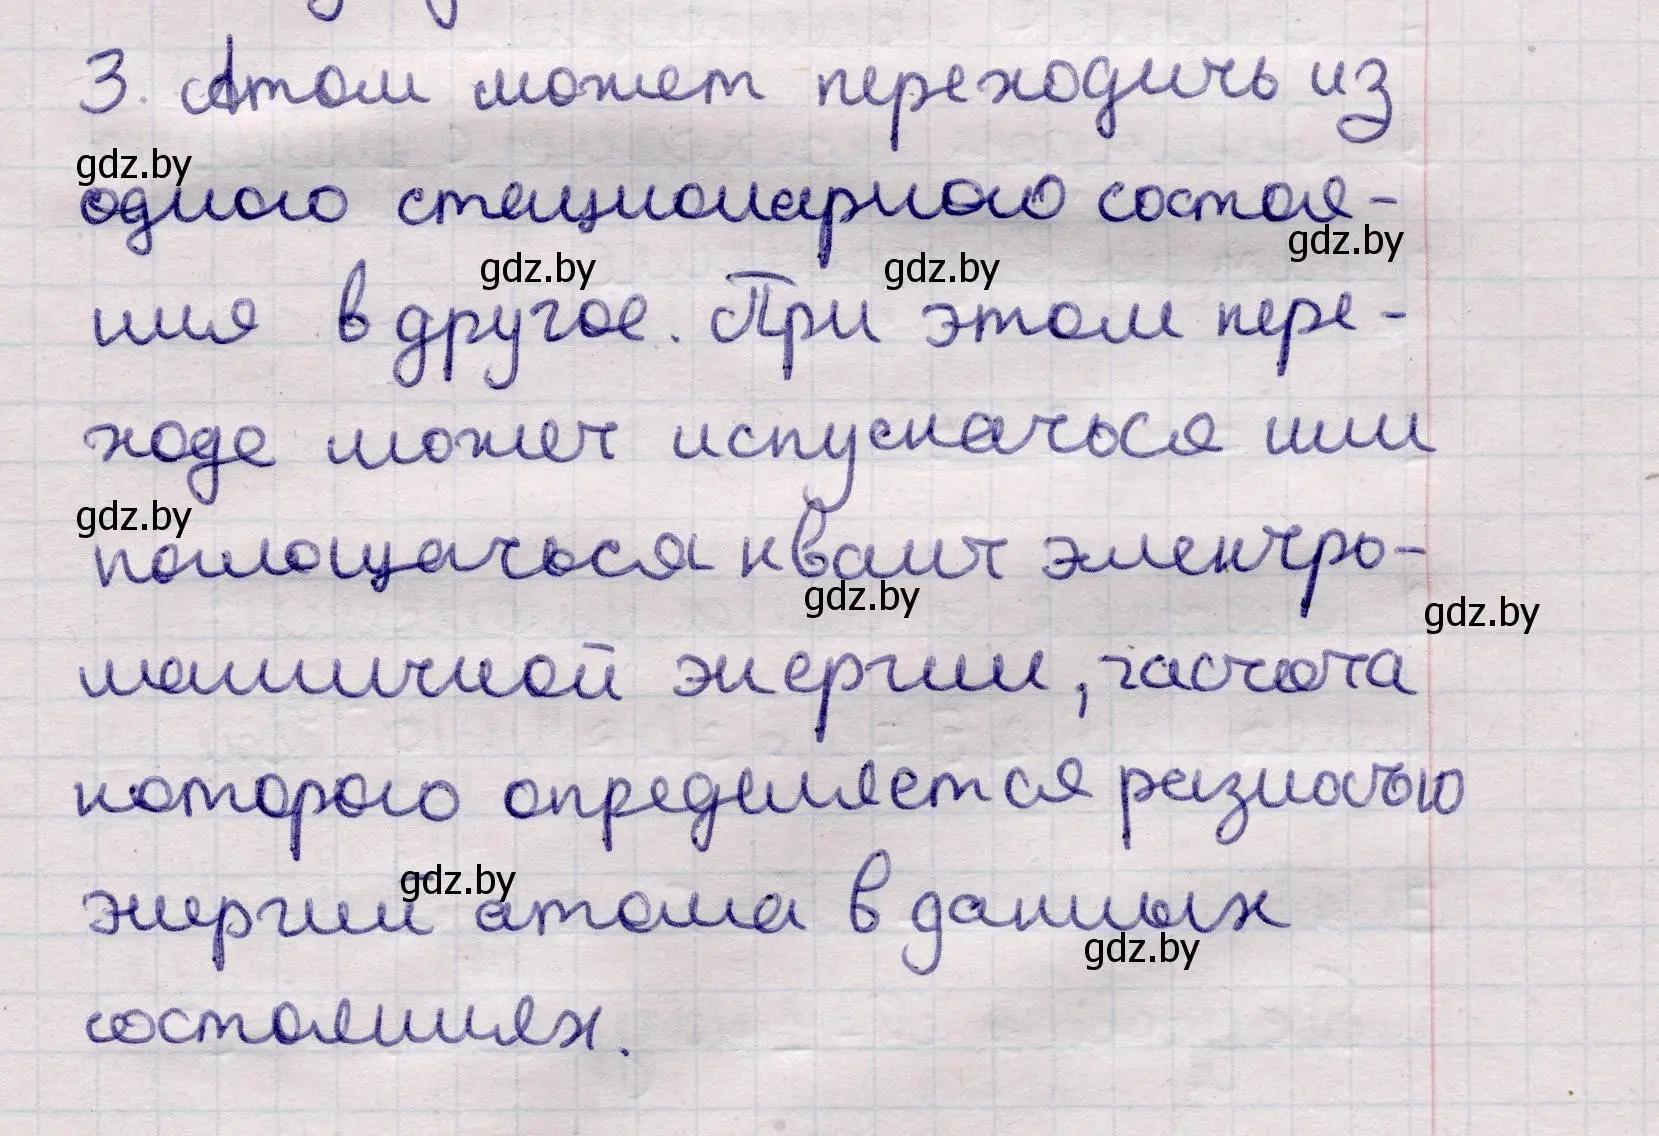 3. Атом может переходить из
gdz.by
одного стационарного состоя-
gdz.by
gdz.by gdz.by
ния в другое. При этом пере-
ходе может испускаться или
gdz.by
поглощаться квант электро-
gdz.by
gdz.by
магнитной энергии, частота
которого определяется разностью
gdz.by
энергий атома в данных
gdz.by
состояниях.